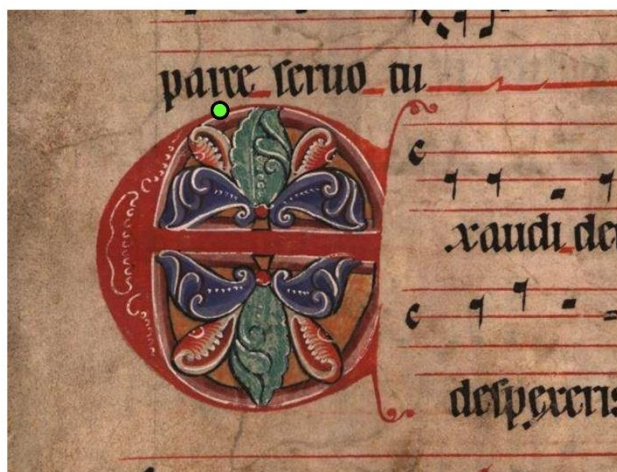 parce seruo tu
Exaudi deu
despexeris